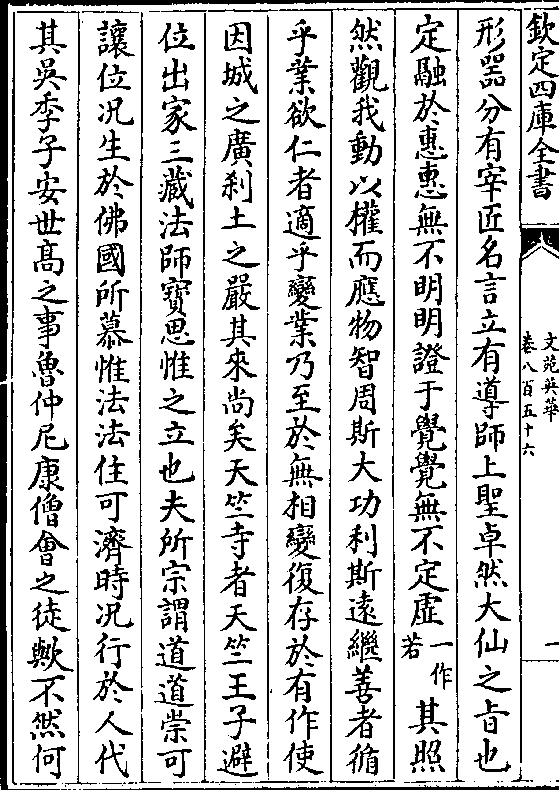 欽定四庫全書
文苑英華
卷八百五十六
一
形器分有宰匠名言立有導師上聖卓然大仙之旨也
定融於惠惠無不明明證于覺覺無不定虛一作若其照
然觀我動以權而應物智周斯大功利斯遠繼善者循
乎業欲仁者適乎變業乃至於無相變復存於有作使
因城之廣剎土之嚴其來尚矣天竺寺者天竺王子避
位出家三藏法師寶思惟之立也夫所宗謂道道崇可
讓位况生於佛國所慕惟法法住可濟時况行於人代
其吳季子安世高之事魯仲尼康僧會之徒歟不然何